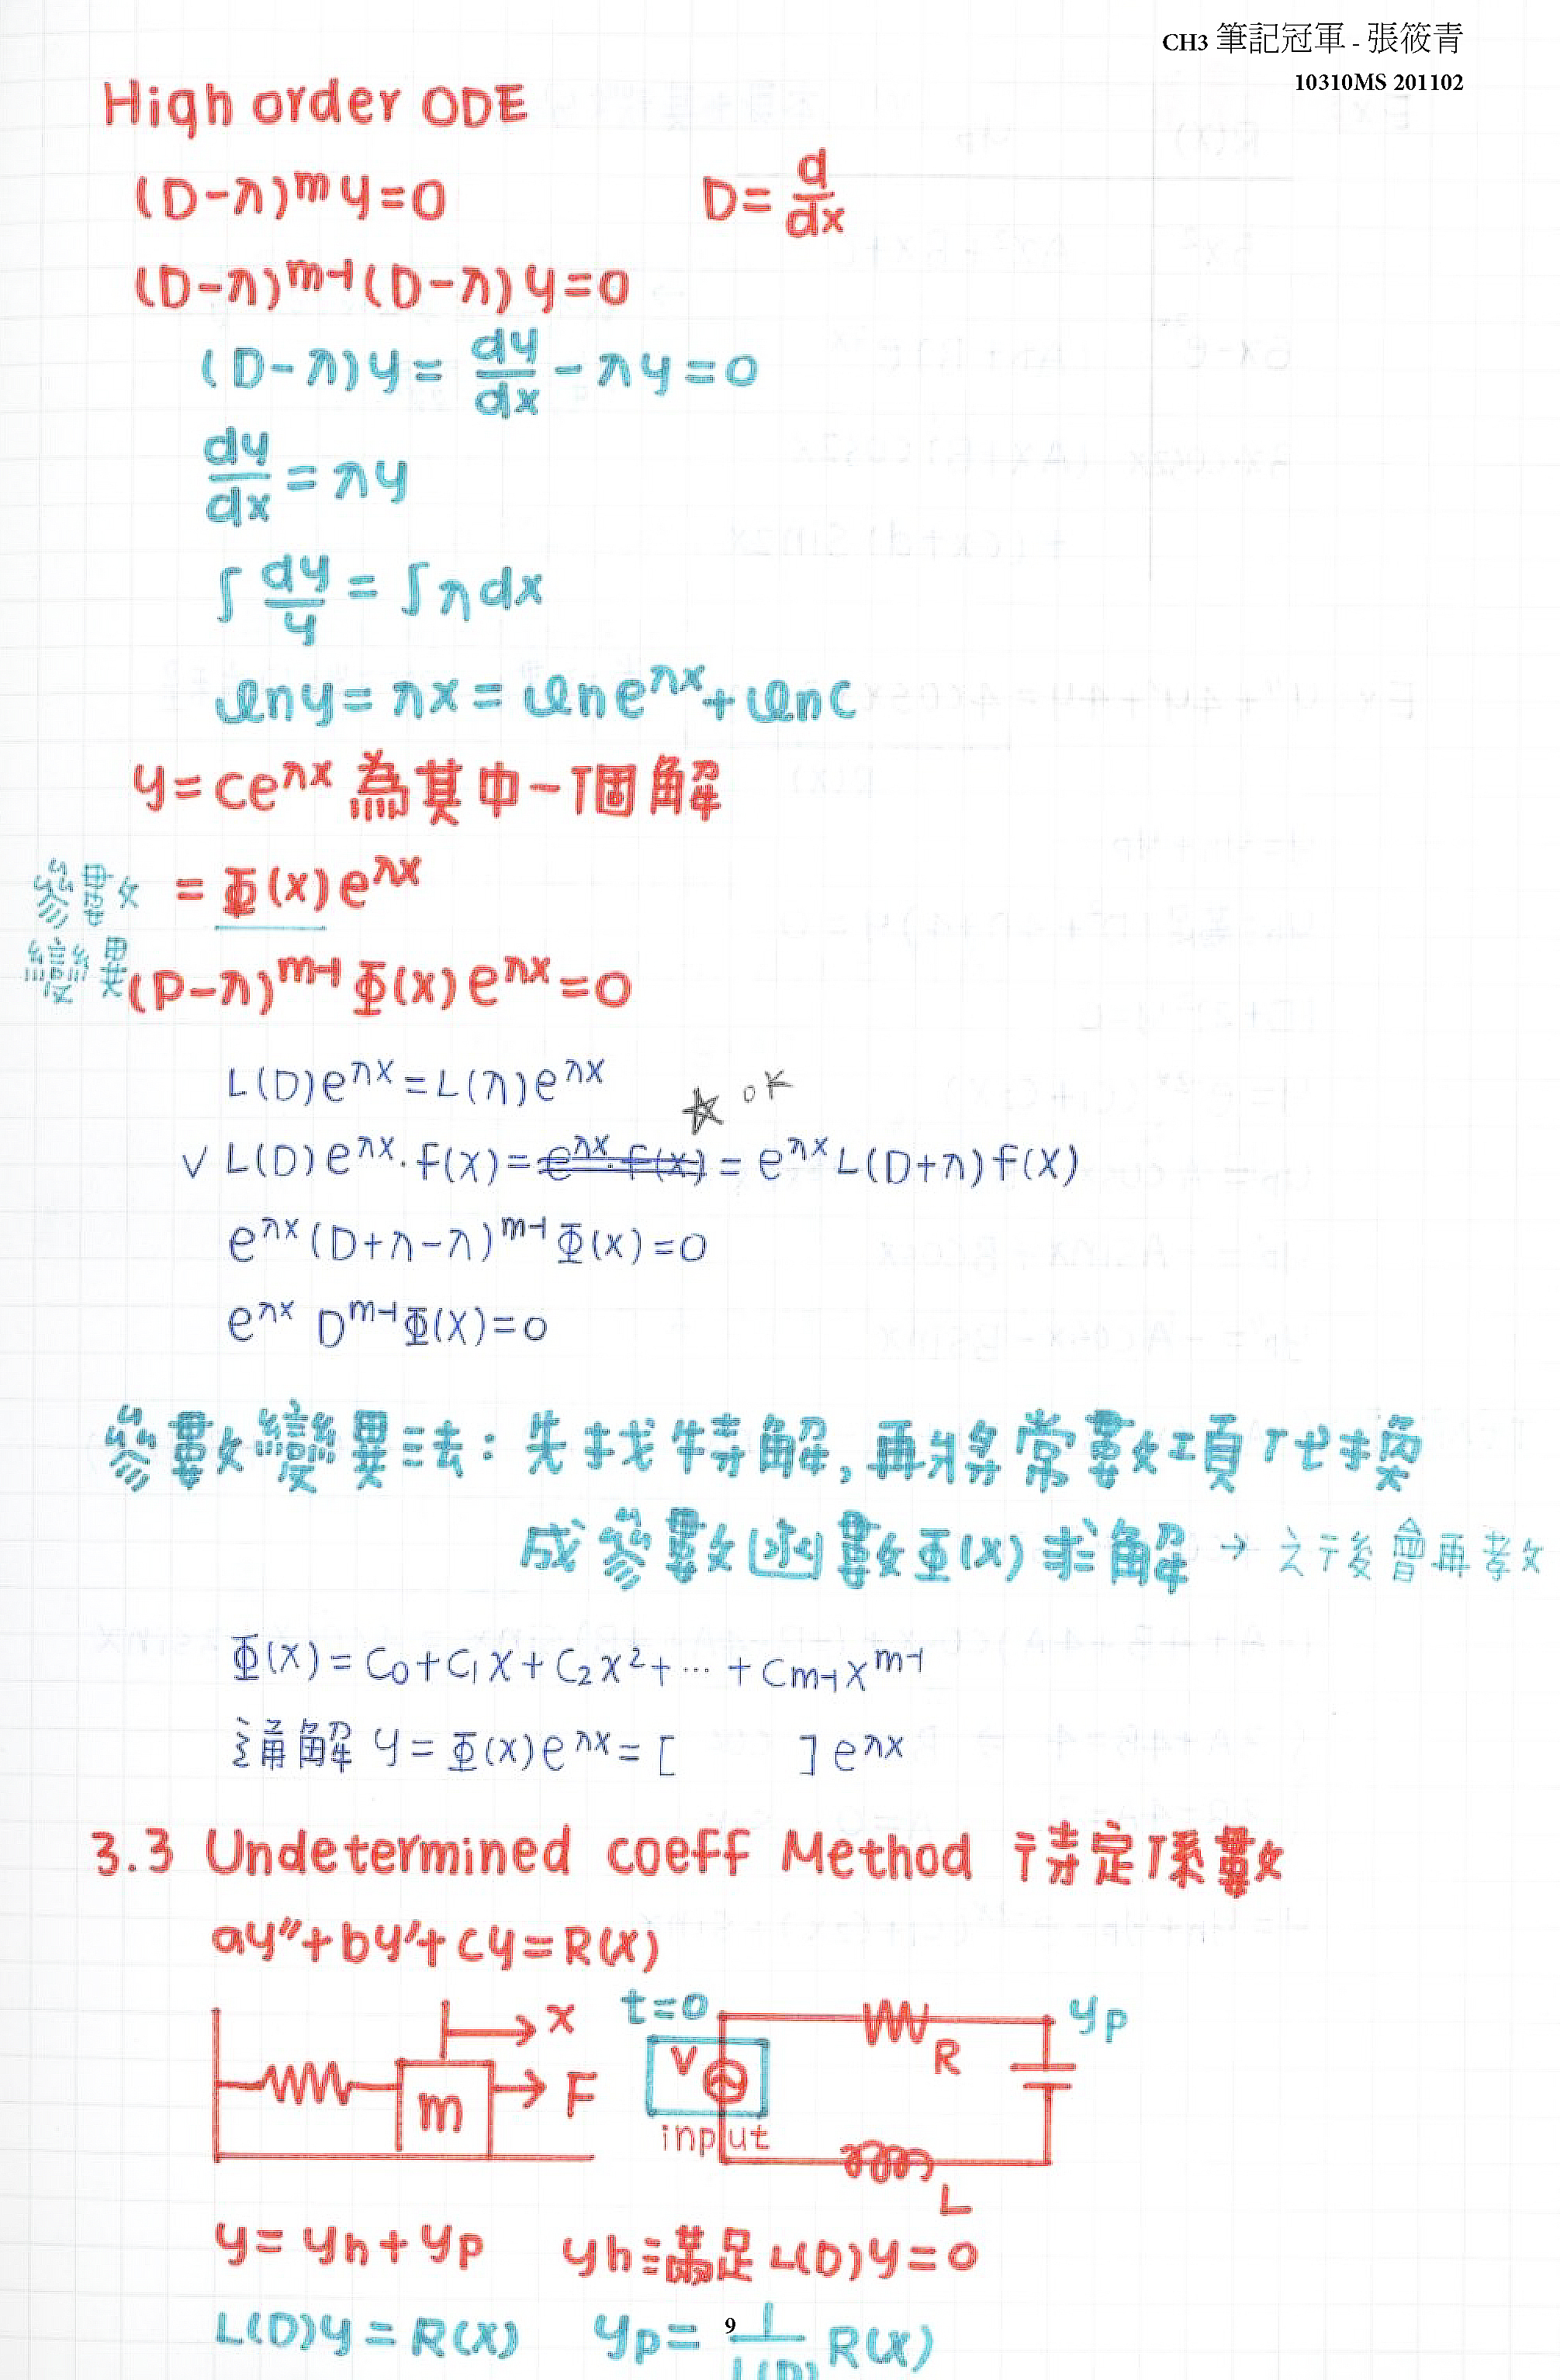 CH3 筆記冠軍 - 張筱青
10310MS 201102
High order ODE
(D-λ)^m y=0 D=d/dx
(D-λ)^{m-1}(D-λ)y=0
(D-λ)y= dy/dx -λy=0
dy/dx =λy
∫ dy/y = ∫λdx
ln y= λx = ln e^{λx}+ln c
y=ce^{λx} 為其中一個解
參數 = Φ(x)e^{λx}
變異 (D-λ)^{m-1} Φ(x)e^{λx}=0
L(D)e^{λx}=L(λ)e^{λx}
☆ OK
∨ L(D)e^{λx}·f(x)= e^{λx}·f(x) = e^{λx}L(D+λ)f(x)
e^{λx}(D+λ-λ)^{m-1}Φ(x)=0
e^{λx} D^{m-1}Φ(x)=0
參數變異法: 先找特解, 再將常數項代換
成參數函數Φ(x)求解 → 之後會再教
Φ(x)=C₀+C₁x+C₂x²+…+C_{m-1}x^{m-1}
通解 y=Φ(x)e^{λx}=[ ]e^{λx}
3.3 Undetermined coeff Method 待定係數
ay″+by′+cy=R(x)
x t=0 y_p
V R
m F
input
L
y= y_h+y_p y_h:滿足L(D)y=0
L(D)y=R(x) y_p= 1/L(D) R(x)
9